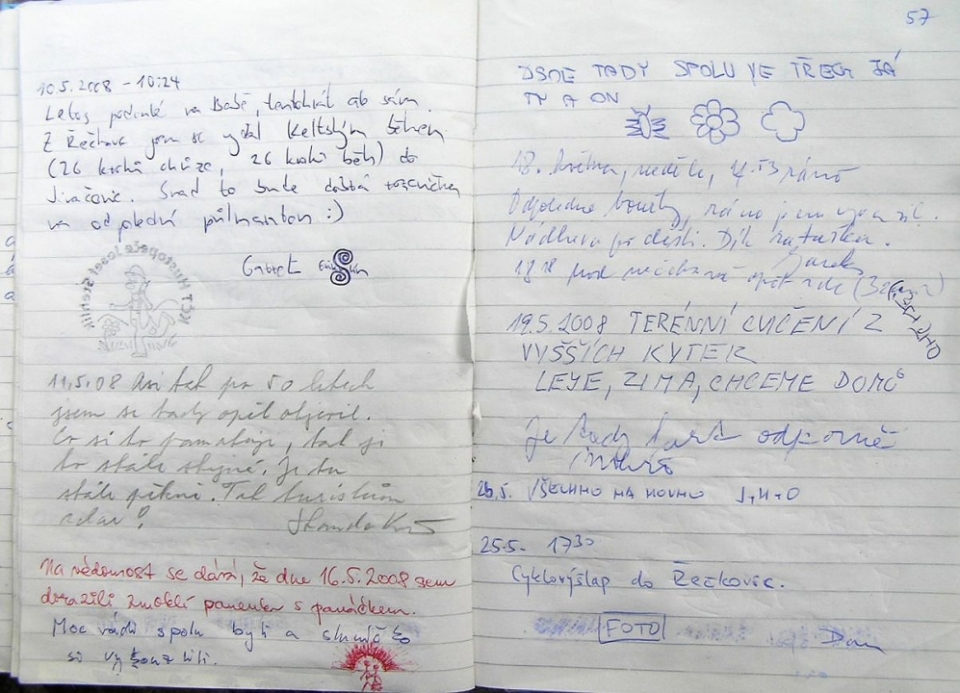 10.5.2008 - 10:24
Letos podruhé na Babě, tentokrát ab sám.
Z Řečkovic jsem se vydal Keltským během
(26 kroků chůze, 26 kroků běh) do
Jinačovic. Snad to bude dobrá rozcvička
na odpolední půlmaraton :)
Gabriel
KČT Hustopeče Josef Šrenill
11.5.08 Asi tak po 50 letech
jsem se tady opět objevil.
Co si to pamatuji, tak je
to stále stejné. Je tu
stále pěkně. Tak turistům
zdar!
Standa
Na vědomost se dává, že dne 16.5.2008 sem
dorazili zmoklí panenka s panáčkem.
Moc rádi spolu byli a sluníčko
si
57
JSME TADY SPOLU VE TŘECH JÁ
TY A ON
18. května, neděle, 4.53 ráno
Odpoledne bouřky, ráno jsem
Nádhera po dešti. Dík
Jarek
18.18 opět zde
19.5.2008 TERÉNNÍ CVIČENÍ Z
VYŠŠÍCH KYTEK
LEJE, ZIMA, CHCEME DOMŮ
Je tady fakt odporně
26.5. VŠECHNO NA HOVNO J+H+O
25.5. 17³⁰
Cyklovýšlap do Řečkovic.
FOTO
Dan